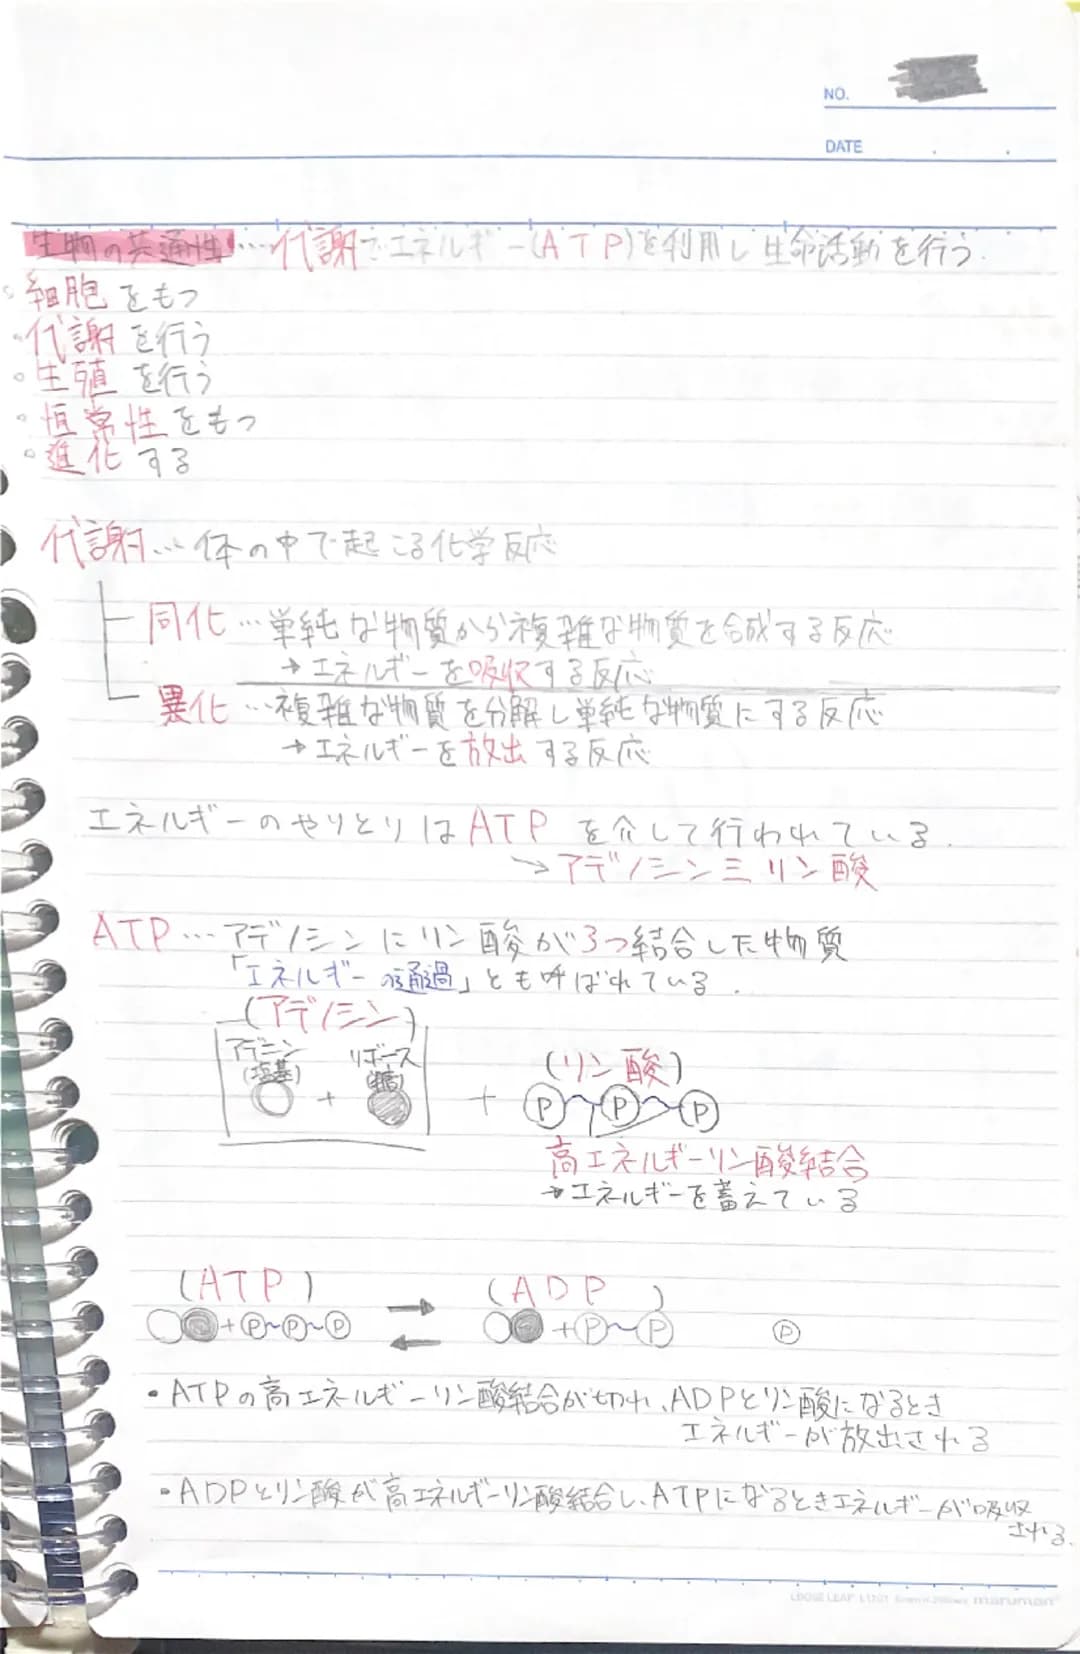 NO.
DATE
生物の共通性…代謝でエネルギー(ATP)を利用し生命活動を行う.
・細胞をもつ
・代謝を行う
・生殖を行う
・恒常性をもつ
・進化する
代謝…体の中で起こる化学反応
同化…単純な物質から複雑な物質を合成する反応
→エネルギーを吸収する反応
異化…複雑な物質を分解し単純な物質にする反応
→エネルギーを放出する反応
エネルギーのやりとりはATPを介して行われている.
→アデノシン三リン酸
ATP…アデノシンにリン酸が3つ結合した物質
「エネルギーの通過」とも呼ばれている.
(アデノシン)
アデニン リボース
(塩基) (糖)
+
+
(リン酸)
P P P
高エネルギーリン酸結合
→エネルギーを蓄えている
(ATP) → (ADP)
+P~P~P ← +P~P P
・ATPの高エネルギーリン酸結合が切れ、ADPとリン酸になるとき
エネルギーが放出される
・ADPとリン酸が高エネルギーリン酸結合し、ATPになるときエネルギーが吸収
される.
LOOSE LEAF maruman